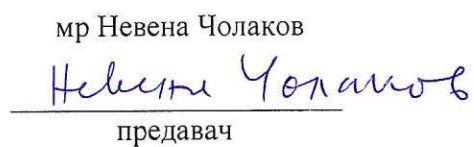 мр Невена Чолаков
Невена Чолаков
предавач